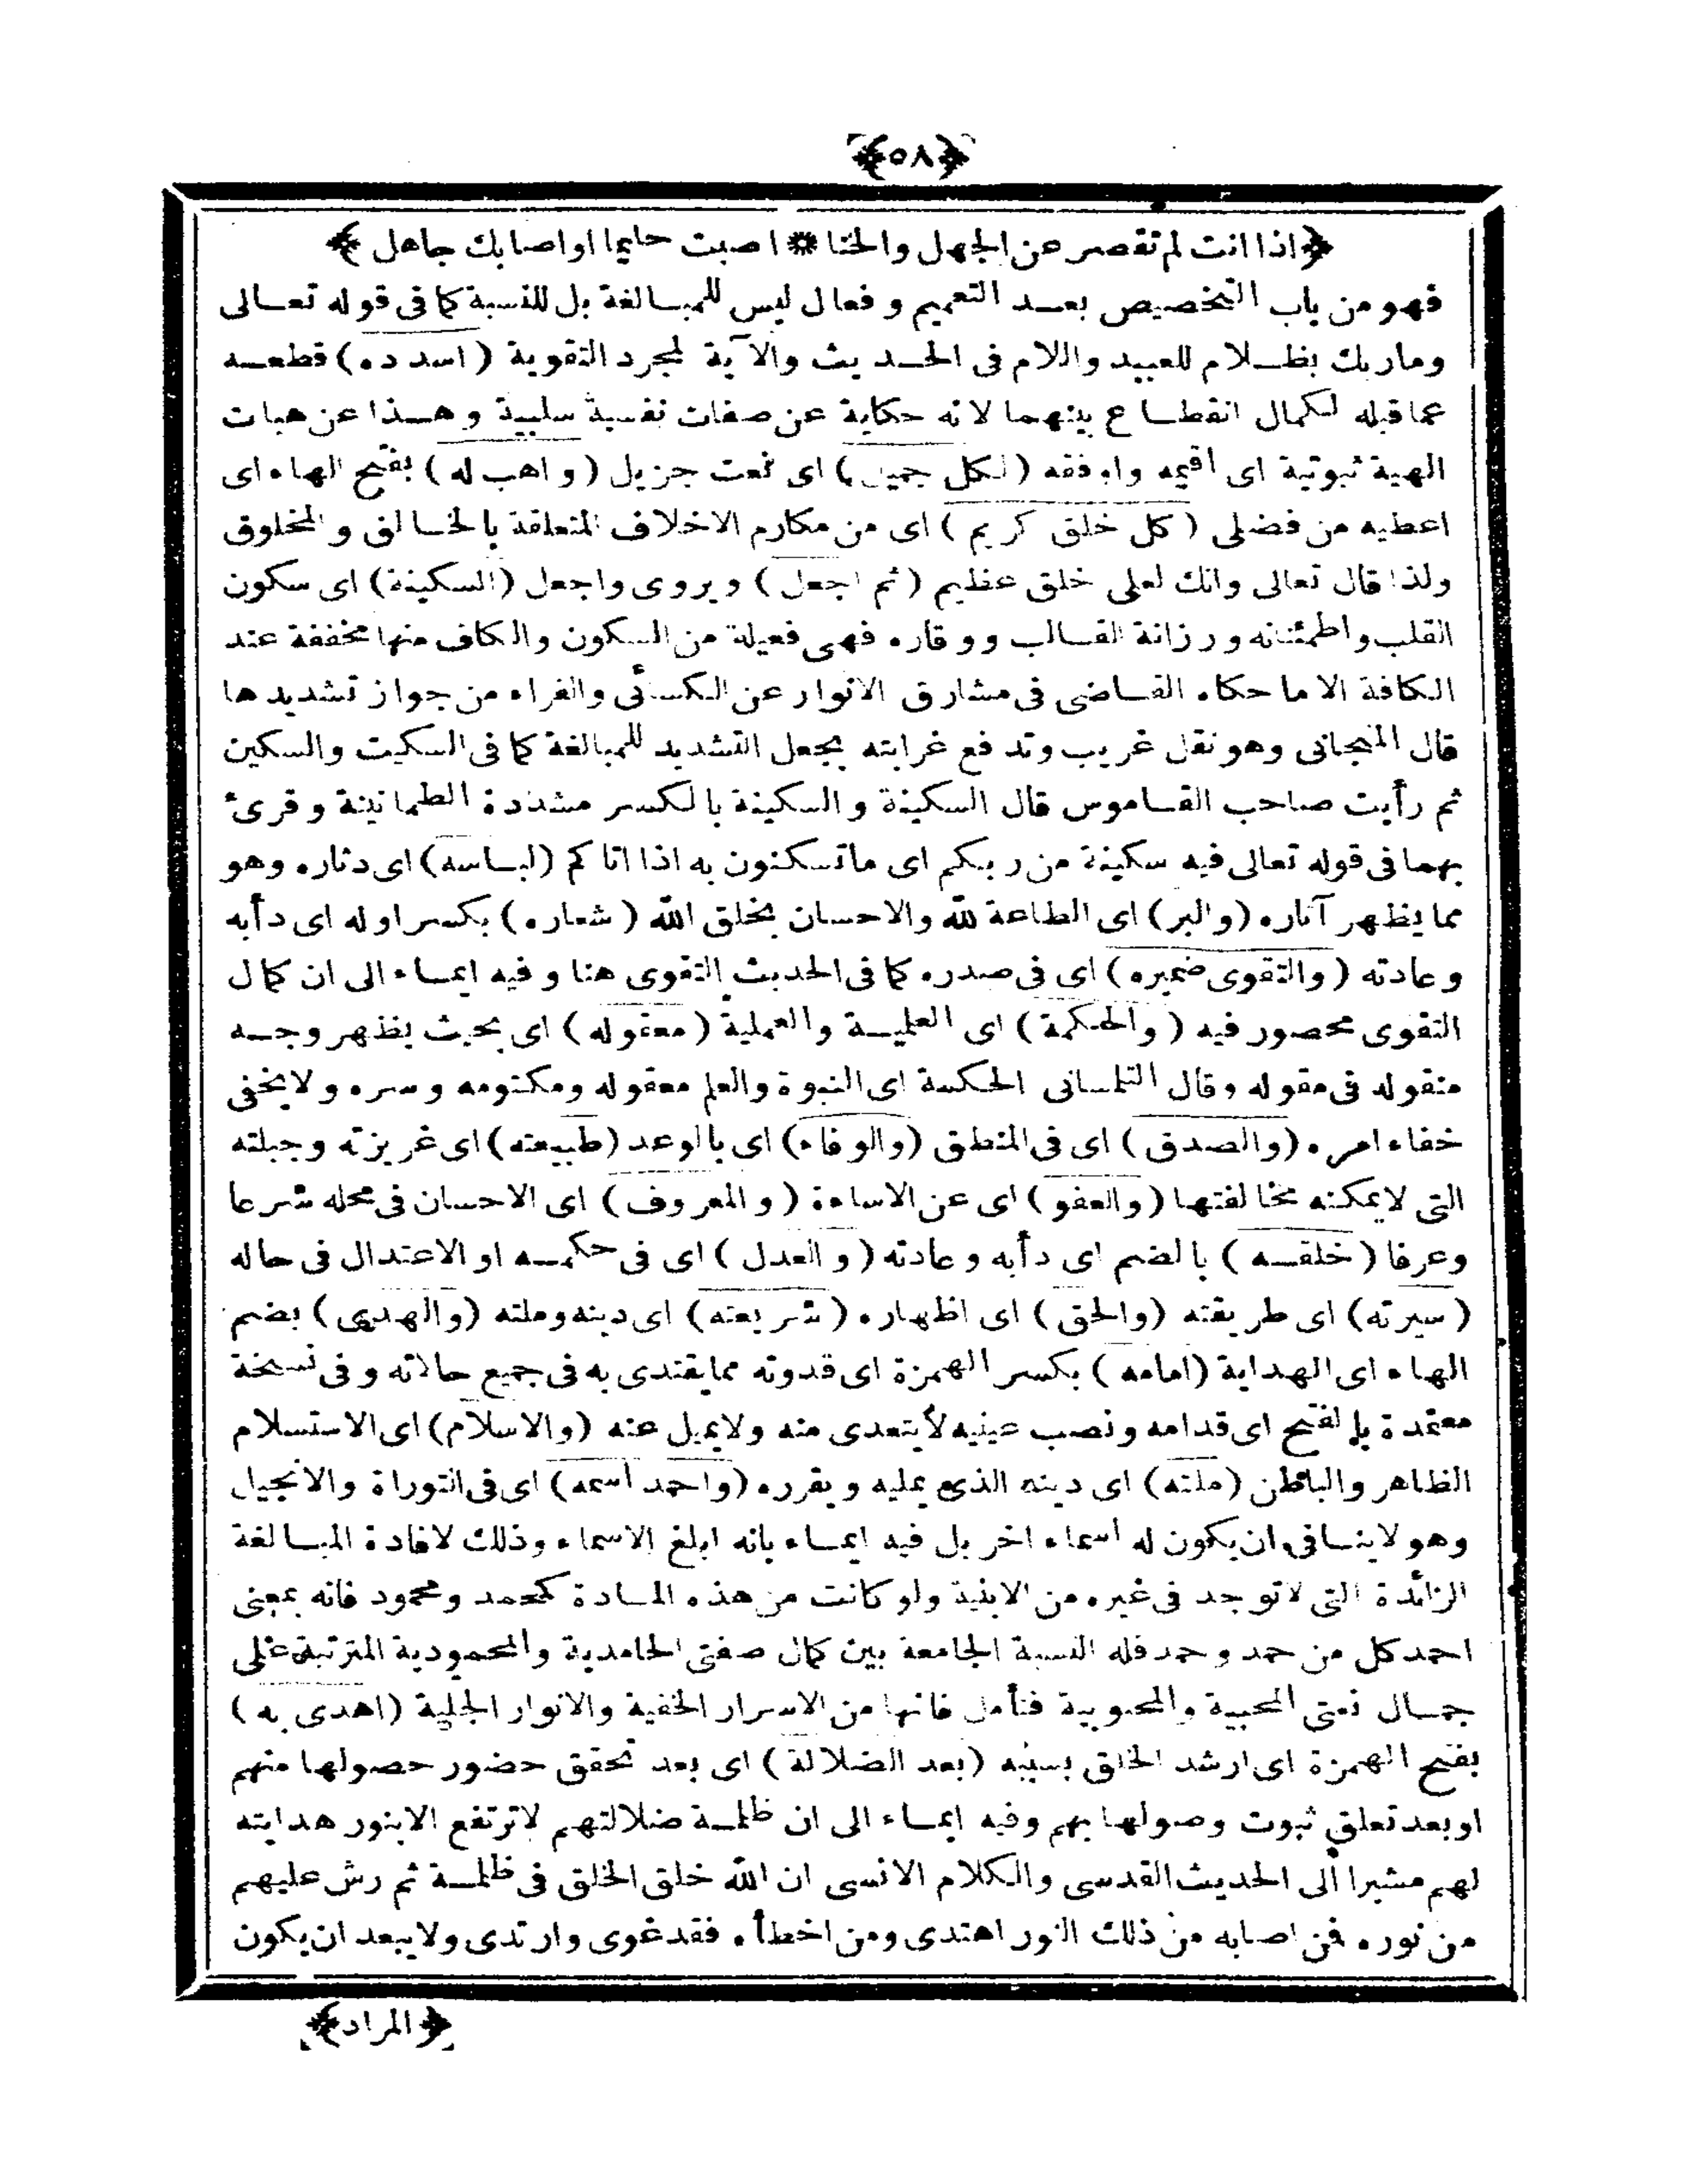 ﴿٥٨﴾
﴿اذا انت لم تقصر عن الجهل والخنا * اصبت حليما او اصابك جاهل﴾
فهو من باب التخصيص بعد التعميم وفعال ليس للمبالغة بل للنسبة كما فى قوله تعالى
وما ربك بظلام للعبيد واللام فى الحديث والآية لمجرد التقوية (اسدده) قطعه
عما قبله لكمال انقطاع بينهما لانه حكاية عن صفات نفسية سلبية وهذا عن هبات
الهية ثبوتية اى اقيمه واوفقه (لكل جميل) اى نعت جزيل (واهب له) بفتح الهاء اى
اعطيه من فضلى (كل خلق كريم) اى من مكارم الاخلاق المتعلقة بالخالق والمخلوق
ولذا قال تعالى وانك لعلى خلق عظيم (ثم اجعل) ويروى واجعل (السكينة) اى سكون
القلب واطمئنانه ورزانة القالب ووقاره فهى فعيلة من السكون والكاف منها مخففة عند
الكافة الا ما حكاه القاضى فى مشارق الانوار عن الكسائى والفراء من جواز تشديدها
قال المنجانى وهو نقل غريب وتدفع غرابته بجعل التشديد للمبالغة كما فى السكيت والسكين
ثم رأيت صاحب القاموس قال السكينة والسكينة بالكسر مشددة الطمانينة وقرئ
بهما فى قوله تعالى فيه سكينة من ربكم اى ما تسكنون به اذا اتاكم (لباسه) اى دثاره وهو
مما يظهر آثاره (والبر) اى الطاعة لله والاحسان بخلق الله (شعاره) بكسر اوله اى دأبه
وعادته (والتقوى ضميره) اى فى صدره كما فى الحديث التقوى هنا وفيه ايماء الى ان كمال
التقوى محصور فيه (والحكمة) اى العلمية والعملية (معقوله) اى بحيث يظهر وجه
منقوله فى مقوله وقال التلمسانى الحكمة اى النبوة والعلم معقوله ومكتومه وسره ولا يخفى
خفاء امره (والصدق) اى فى المنطق (والوفاء) اى بالوعد (طبيعته) اى غريزته وجبلته
التى لا يمكنه مخالفتها (والعفو) اى عن الاساءة (والمعروف) اى الاحسان فى محله شرعا
وعرفا (خلقه) بالضم اى دأبه وعادته (والعدل) اى فى حكمه او الاعتدال فى حاله
(سيرته) اى طريقته (والحق) اى اظهاره (شريعته) اى دينه وملته (والهدى) بضم
الهاء اى الهداية (امامه) بكسر الهمزة اى قدوته مما يقتدى به فى جميع حالاته وفى نسخة
معتمدة بالفتح اى قدامه ونصب عينيه لا يتعدى منه ولا يميل عنه (والاسلام) اى الاستسلام
الظاهر والباطن (ملته) اى دينه الذى يمليه ويقرره (واحمد اسمه) اى فى التوراة والانجيل
وهو لا ينافى ان يكون له اسماء اخر بل فيه ايماء بانه ابلغ الاسماء وذلك لافادة المبالغة
الزائدة التى لا توجد فى غيره من الابنية ولو كانت من هذه المادة كمحمد ومحمود فانه بمعنى
احمد كل من حمد وحمد فله النسبة الجامعة بين كمال صفتى الحامدية والمحمودية المترتبة على
جمال نعتى المحبية والمحبوبية فتأمل فانها من الاسرار الخفية والانوار الجلية (اهدى به)
بفتح الهمزة اى ارشد الخلق بسببه (بعد الضلالة) اى بعد تحقق حضور حصولها منهم
او بعد تعلق ثبوت وصولها بهم وفيه ايماء الى ان ظلمة ضلالتهم لا ترتفع الا بنور هدايته
لهم مشيرا الى الحديث القدسى والكلام الانسى ان الله خلق الخلق فى ظلمة ثم رش عليهم
من نوره فمن اصابه من ذلك النور اهتدى ومن اخطأه فقد غوى وارتدى ولا يبعد ان يكون
﴿المراد﴾